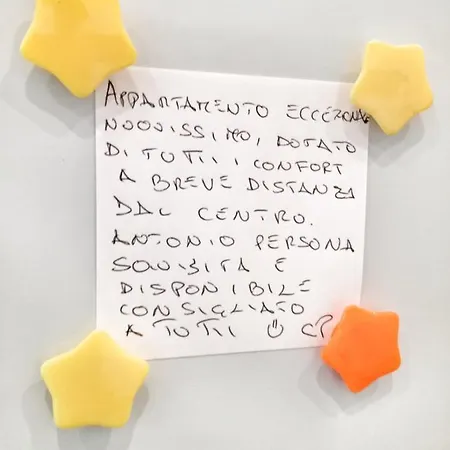 APPARTAMENTO ECCEZIONALE
NUOVISSIMO, DOTATO
DI TUTTI I CONFORT
A BREVE DISTANZA
DAL CENTRO.
ANTONIO PERSONA
SQUISITA E
DISPONIBILE
CONSIGLIATO
A TUTTI